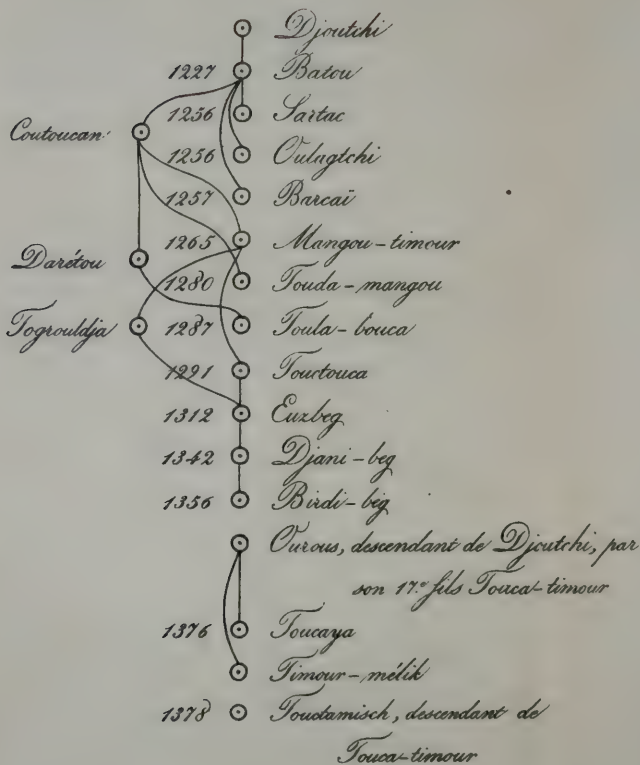 Djoutchi
1227 Batou
1256 Sartac
Coutoucan
1256 Oulagtchi
1257 Barcaï
1265 Mangou-timour
Darétou
1280 Touda-mangou
Togrouldja 1287 Toula-bouca
1291 Touctouca
1312 Euzbeg
1342 Djani-beg
1356 Birdi-beg
Ourous, descendant de Djoutchi, par
son 17.e fils Touca-timour
1376 Toucaya
Timour-mélik
1378 Touctamisch, descendant de
Touca-timour